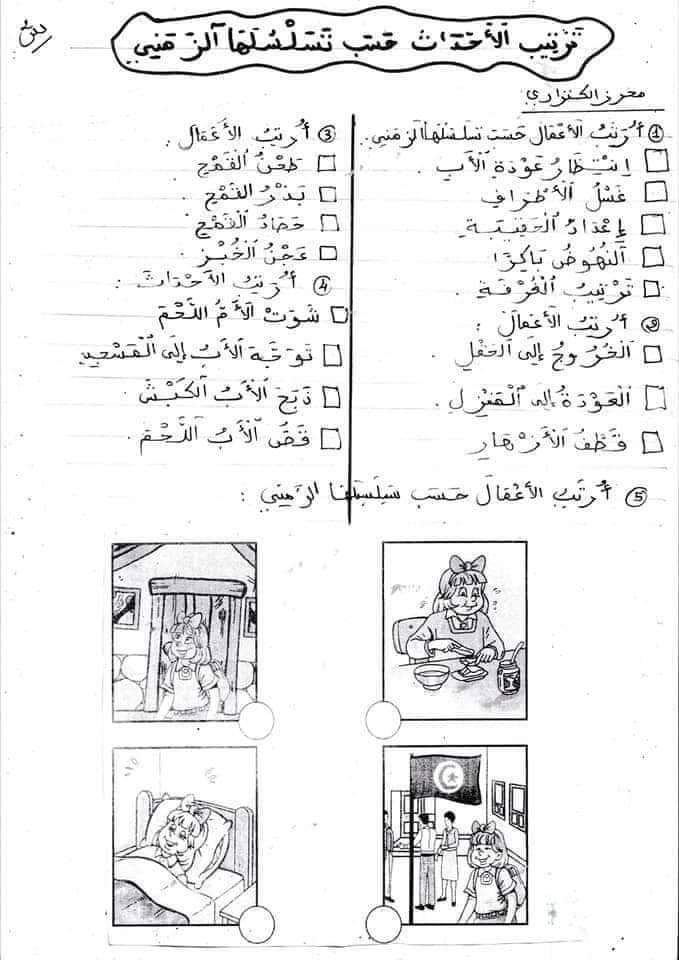 تَرْتِيبُ الأَحْدَاثِ حَسَبَ تَسَلْسُلِهَا الزَّمَنِي
محرز الكنزاري
① أُرَتِّبُ الأَعْمَالَ حَسَبَ تَسَلْسُلِهَا الزَمَنِي.
اِنْتِظَارُ عَوْدَةِ الأَبِ.
غَسْلُ الأَطْرَافِ
إِعْدَادُ الحَقِيبَةِ
النُّهُوضُ بَاكِرًا
تَرْتِيبُ الغُرْفَةِ.
② أُرَتِّبُ الأَعْمَالَ:
الخُرُوجُ إِلَى الحَقْلِ.
العَوْدَةُ إِلَى المَنْزِلِ.
قَطْفُ الأَزْهَارِ
③ أُرَتِّبُ الأَعْمَالَ.
طَحْنُ القَمْحِ
بَذْرُ القَمْحِ.
حَصَادُ القَمْحِ
عَجْنُ الخُبْزِ.
④ أُرَتِّبُ الأَحْدَاثَ:
شَوَتْ الأُمُّ اللَّحْمَ
تَوَجَّهَ الأَبُ إِلَى المَسْجِدِ
ذَبَحَ الأَبُ الكَبْشَ.
قَصَّ الأَبُ اللَّحْمَ.
⑤ أُرَتِّبُ الأَعْمَالَ حَسَبَ سَلِسِلِهَا الزَّمِنِي: